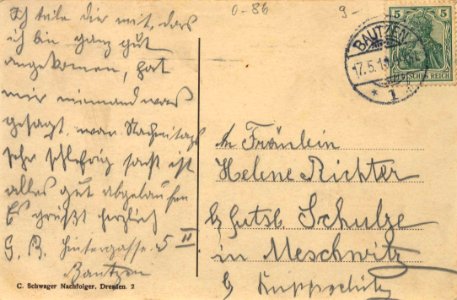 0-86
9-
Ich teile Dir mit, dass
ich bin ganz gut
angekommen, hat
mir niemand was
gesagt, war Nachmittags
sehr schläfrig sonst ist
alles gut abgelaufen
Es grüßt herzlich
G. B. Hintergasse 5 II
Bautzen
C. Schwager Nachfolger, Dresden. 2
BAUTZEN
17.5.1
* 1
5 5
DEUTSCHES REICH
An Fräulein
Helene Richter
b/ Gutsb. Schulze
in Meschwitz
b/ Kuppritz